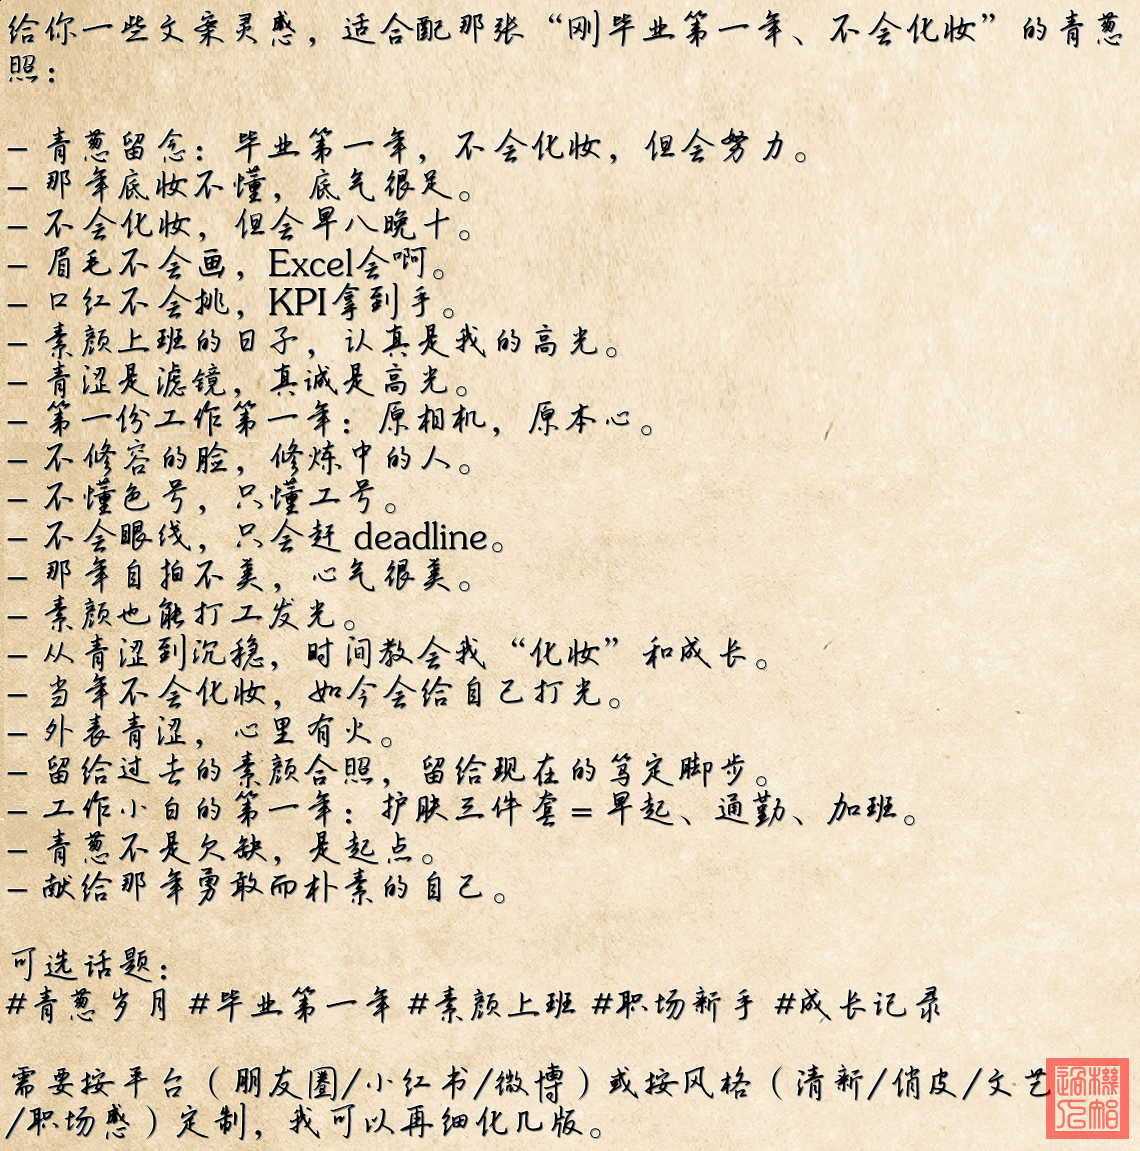 给你一些文案灵感，适合配那张“刚毕业第一年、不会化妆”的青葱
照：
– 青葱留念：毕业第一年，不会化妆，但会努力。
– 那年底妆不懂，底气很足。
– 不会化妆，但会早八晚十。
– 眉毛不会画，Excel会啊。
– 口红不会挑，KPI拿到手。
– 素颜上班的日子，认真是我的高光。
– 青涩是滤镜，真诚是高光。
– 第一份工作第一年：原相机，原本心。
– 不修容的脸，修炼中的人。
– 不懂色号，只懂工号。
– 不会眼线，只会赶 deadline。
– 那年自拍不美，心气很美。
– 素颜也能打工发光。
– 从青涩到沉稳，时间教会我“化妆”和成长。
– 当年不会化妆，如今会给自己打光。
– 外表青涩，心里有火。
– 留给过去的素颜合照，留给现在的笃定脚步。
– 工作小白的第一年：护肤三件套=早起、通勤、加班。
– 青葱不是欠缺，是起点。
– 献给那年勇敢而朴素的自己。
可选话题：
#青葱岁月 #毕业第一年 #素颜上班 #职场新手 #成长记录
需要按平台（朋友圈/小红书/微博）或按风格（清新/俏皮/文艺
/职场感）定制，我可以再细化几版。